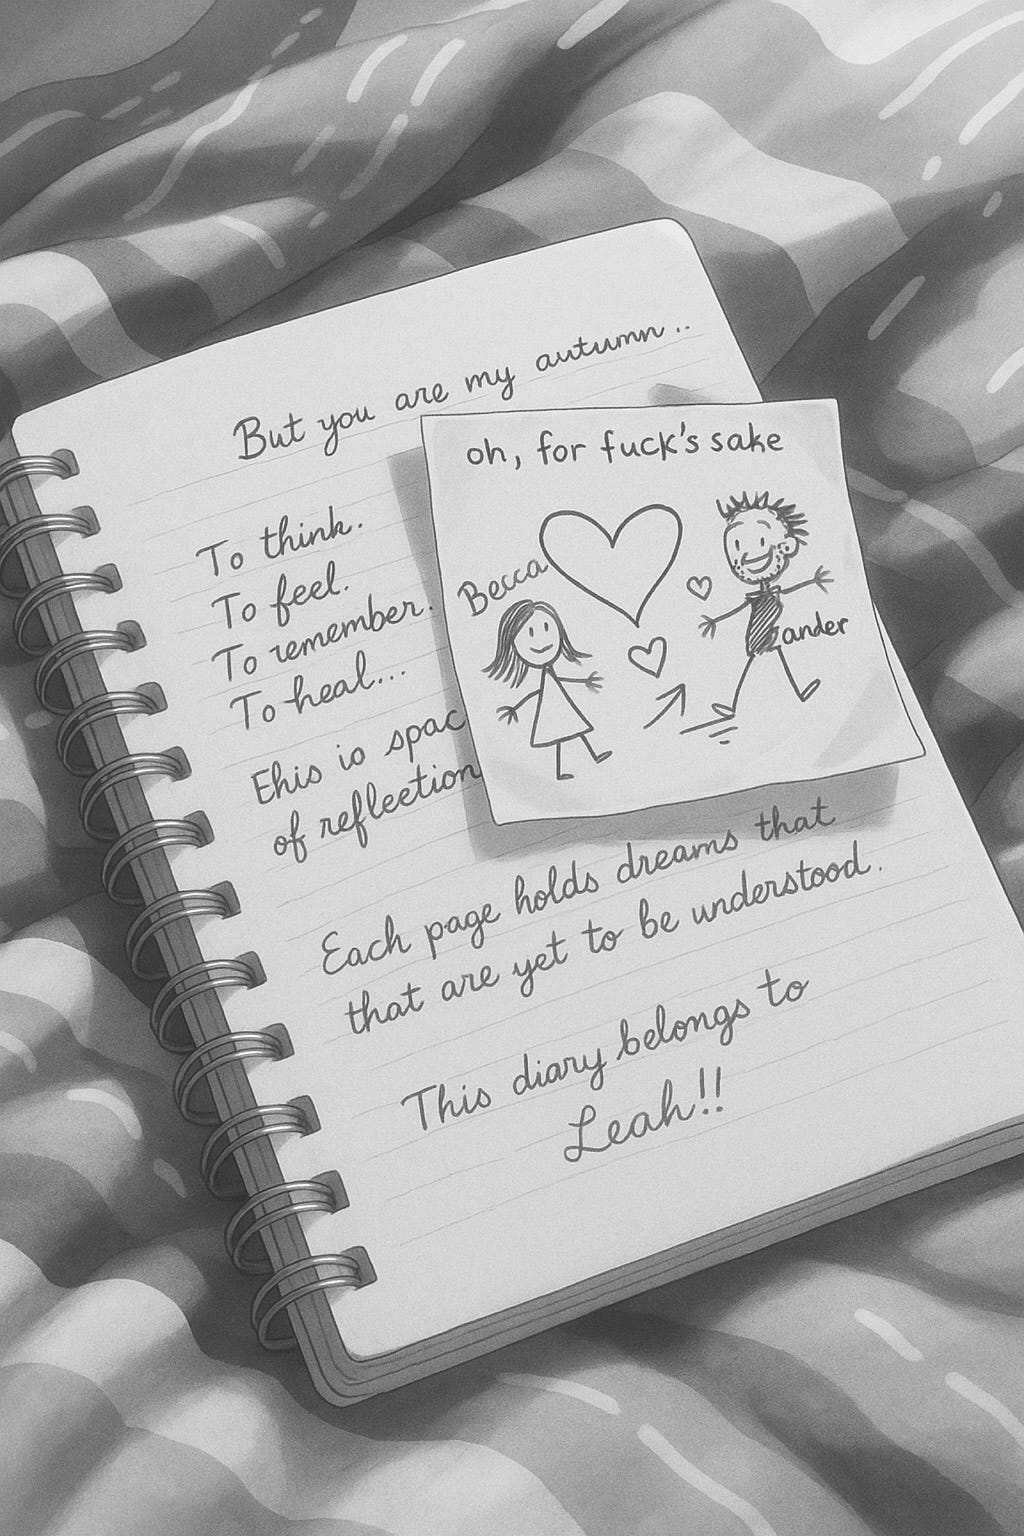 But you are my autumn ..
oh, for fuck's sake
Becca
ander
To think.
To feel.
To remember.
To heal...
Ehis io spac
of refleetion
Each page holds dreams that
that are yet to be understood.
This diary belongs to
Leah!!